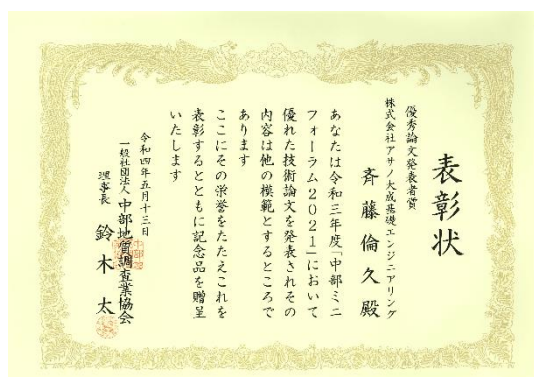 表彰状
優秀論文発表者賞
株式会社アサノ大成基礎エンジニアリング
斉藤倫久殿
あなたは令和三年度「中部ミニ
フォーラム2021」において
優れた技術論文を発表されその
内容は他の模範とするところで
あります
ここにその栄誉をたたえこれを
表彰するとともに記念品を贈呈
いたします
令和四年五月十三日
一般社団法人中部地質調査業協会
理事長 鈴木太